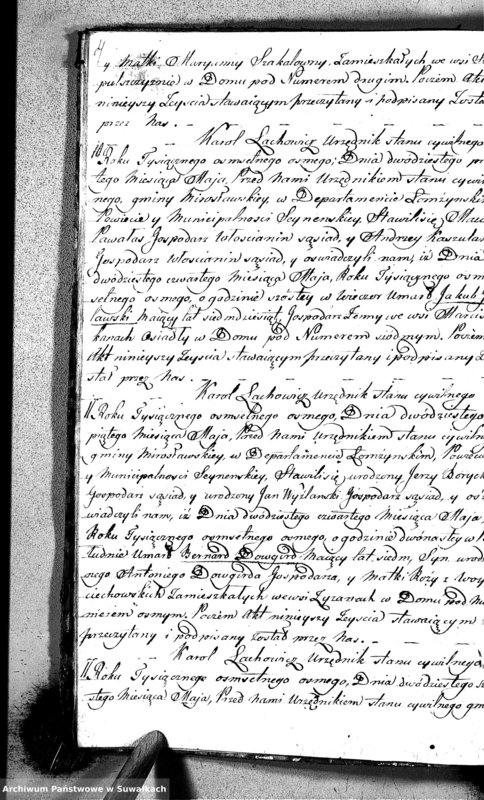 4
y matki Maryanny Szakalowny, Zamieszkałych we wsi
pulszczyznie w Domu pod Numerem drugim. Poczem Akt
ninieyszy Zeyscia stawaiącym przeczytany i podpisany Zosta
przez Nas.
Karol Lachowicz Urzędnik stanu cywilnego
10 Roku Tysiącznego osmsetnego osmego; Dnia dwodziestego
tego Miesiąca Maja, Przed Nami Urzędnikiem stanu cywil
nego, gminy Mirosławskiey, w Departamencie Łomżynskim
Powiecie y Municipalnosci Seynenskiey, Stawilisię
Pawałas Gospodarz Włoscianin sąsiad, y Andrzey Kaszulas
Gospodarz Włoscianin sąsiad, y oswiadczyli nam, iż Dnia
dwodziestego czwartego Miesiąca Maja, Roku Tysiącznego osm
setnego osmego, o godzinie szostey w wieczor Umarł Jakub
ławski Maiący lat siedmdziesiąt, Gospodarz Ziemny we wsi
kanach Osiadły w Domu pod Numerem siodmym. Poczem
Akt ninieyszy Zeyscia stawaiącym przeczytany i podpisany Zo
stał przez Nas.
Karol Lachowicz Urzędnik stanu cywilnego
11 Roku Tysiącznego osmsetnego osmego, Dnia dwodziestego
piątego Miesiąca Maja, Przed Nami Urzędnikiem stanu cywilne
gminy Mirosławskiey, w Departamencie Łomżynskim, Powie
y Municipalnosci Seynenskiey, Stawilisię urodzony Jerzy
Gospodarz sąsiad, y urodzony Jan Wyżlanski Gospodarz sąsiad, y os
wiadczyli nam, iż Dnia dwodziestego czwartego Miesiąca Maja,
Roku Tysiącznego osmsetnego osmego, o godzinie dwonasty w
łudnie Umarł Bernard Dowgird Maiący lat siedm, Syn uro
nego Antoniego Dowgirda Gospodarza, y Matki Roży z Woy
ciechowskich Zamieszkałych we wsi Zyzanach w Domu pod Nu
merem osmym. Poczem Akt ninieyszy Zeyscia stawaiącym
przeczytany i podpisany Został przez Nas.
Karol Lachowicz Urzędnik stanu cywilnego
11 Roku Tysiącznego osmsetnego osmego, Dnia dwodziestego
stego Miesiąca Maja, Przed Nami Urzędnikiem stanu cywilnego gm
Archiwum Państwowe w Suwałkach